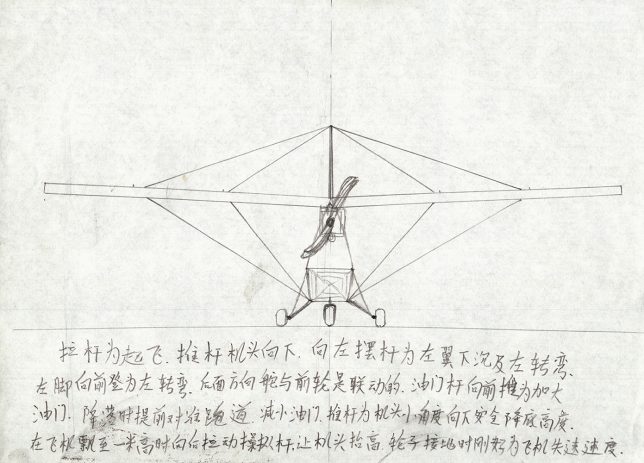 拉杆为起飞、推杆机头向下、向左摆杆为左翼下沉及左转弯、
左脚向前登为左转弯、后面方向舵与前轮是联动的、油门杆向前推为加大
油门、降落时提前对准跑道、减小油门、推杆为机头小角度向下安全降低高度、
在飞机飘至一米高时向后拉动操纵杆、让机头抬高、轮子接地时刚好为飞机失速速度、